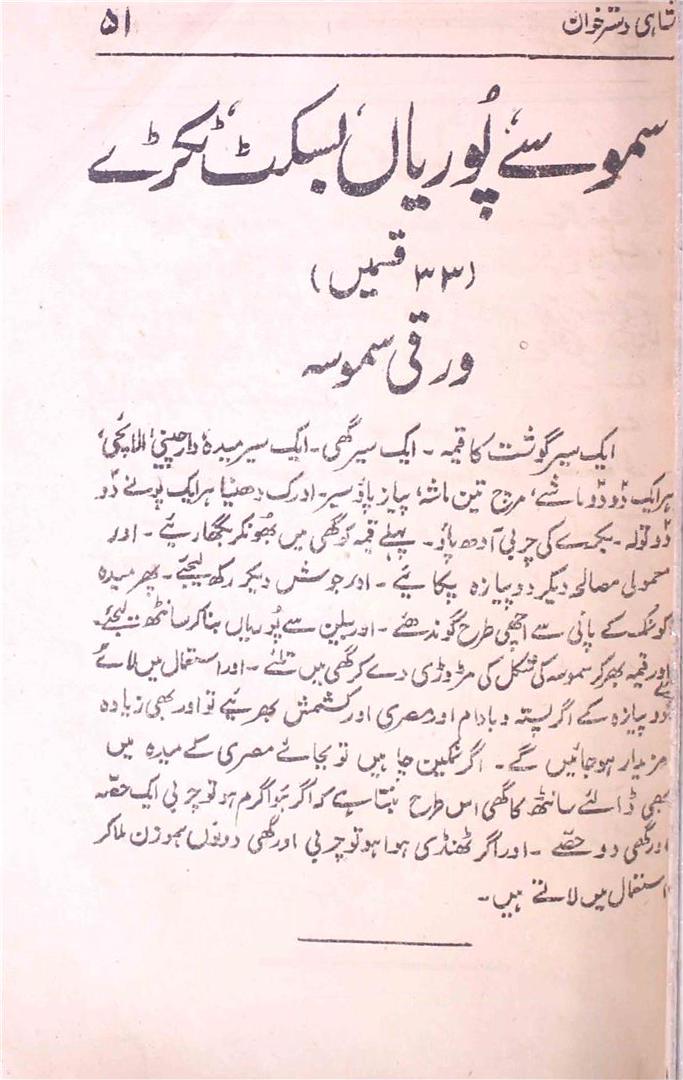 شاہی دسترخوان ۵۱
سموسے، پُوریاں، بسکٹ، ٹکڑے
(۳۳ قسمیں)
ورقی سموسہ
ایک سیر گوشت کا قیمہ ۔ ایک سیر گھی ۔ ایک سیر میدہ، دارچینی، الائچی،
ہر ایک دَو دَو ماشے، مرچ تین ماشہ، پیاز پاؤ سیر ۔ ادرک دھنیا ہر ایک پونے دَو
دَو تولہ ۔ بکرے کی چربی آدھ پاؤ۔ پہلے قیمہ کو گھی میں بھُونکر بگھارئیے ۔ اور
معمولی مصالحہ دیکر دو پیازہ پکائیے ۔ اور جوش دیکر رکھ لیجئے ۔ پھر میدہ
کو نمک کے پانی سے اچھی طرح گوندھئے ۔ اور بیلن سے پُوریاں بنا کر سانٹھ لیجئے۔
اور قیمہ بھر کر سموسہ کی شکل کی مڑوڑی دے کر گھی میں تلئے ۔ اور استعمال میں لائے
دو پیازہ کے اگر پستہ و بادام اور مصری اور کشمش بھریئے تو اور بھی زیادہ
مزیدار ہو جائیں گے ۔ اگر نمکین چاہیں تو بجائے مصری کے میدہ میں
بھی ڈالئے سانٹھ کا گھی اس طرح بنتا ہے کہ اگر ہوا گرم ہو تو چربی ایک حصّہ
اور گھی دو حصّے ۔ اور اگر ٹھنڈی ہوا ہو تو چربی اور گھی دونوں ہموزن ملا کر
استعمال میں لاتے ہیں ۔